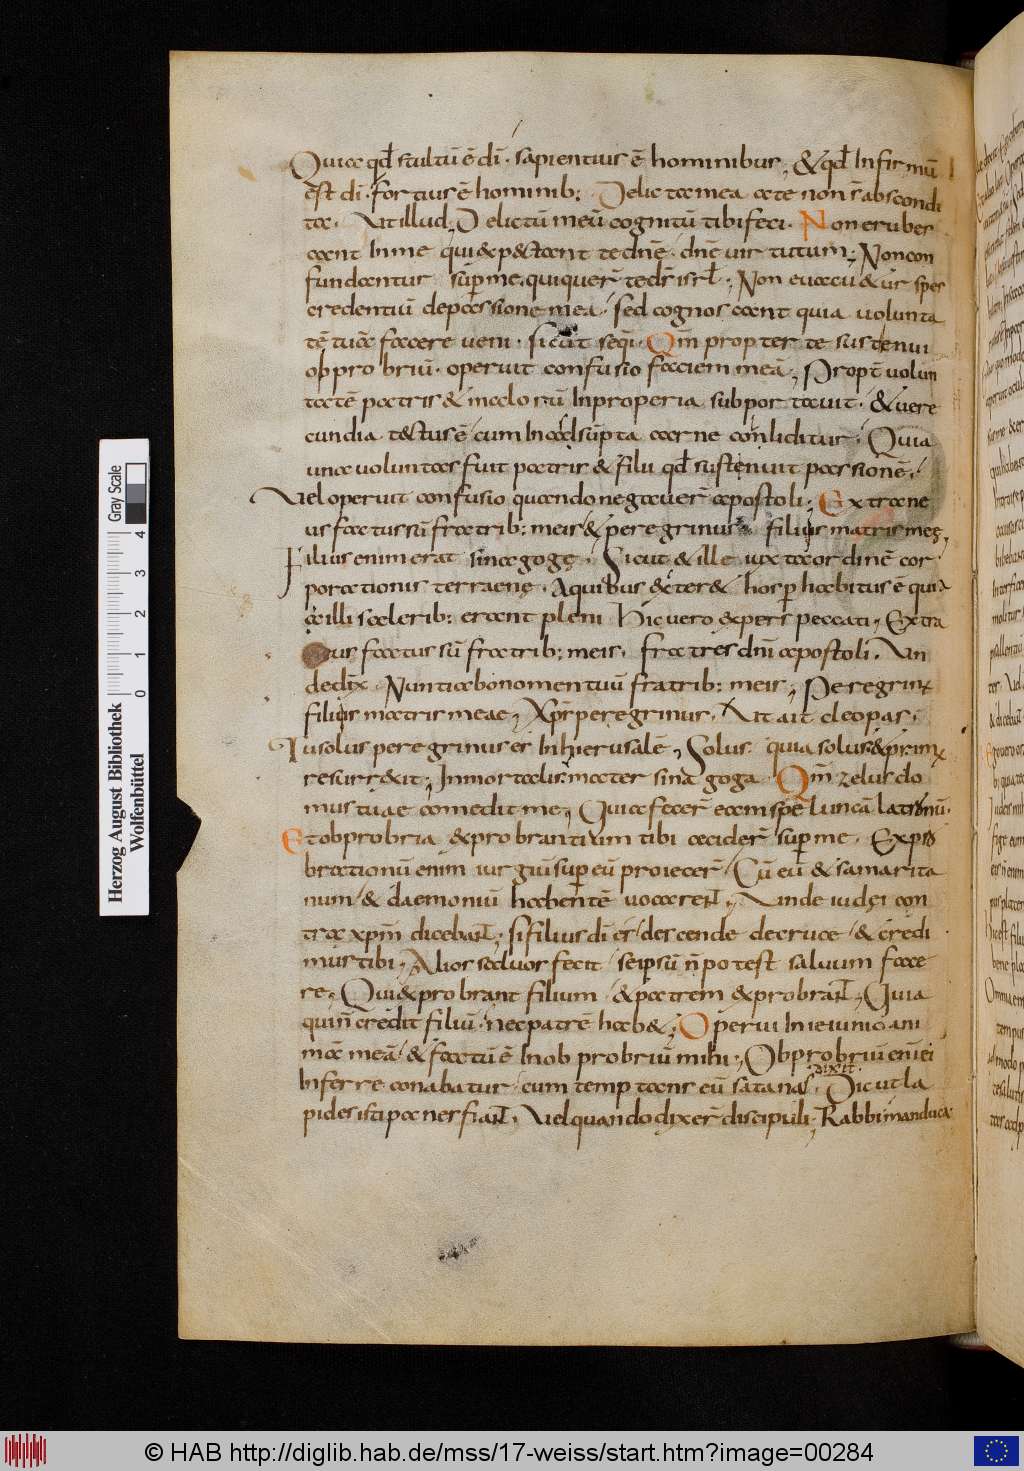 Quia qđ stultū ē dī · sapientius ē hominibus, & qđ Infirmū
est dī · fortius ē hominib: Delicta mea a te non s̄ abscondi
ta · Ut illud, Delictū meū cognitū tibi feci · Non erubes
cant In me qui expectant te dn̄e · dn̄e uirtutum; Non con
fundantur sup me · qui quer̄ te ds̄ isrł; Non euacuetur spes
credentiū de passione mea · sed cognoscant quia volunta
tē tuā facere veni · sicut seq̄ · Qm̄ propter te sustenui
obprobriū · operuit confusio faciem meā, Propt̄ volun
tatē patris & malorū Inproperia subportavit · & uere
cundia tectus ē cum In adsūpta carne conliditur · Quia
una voluntas fuit patris & filii qđ sustenuit passionē ·
Vel operuit confusio quando negaver̄ apostoli; Extrane
us factus sū fratrib: meis & peregrinus filiis matris meę,
Filius enim erat sinagogę · Sicut & ille iuxta ordinē cor
porationis terraenę · A quibus & exter & hosp habitus ē quia
illi scelerib: erant pleni hic vero expers peccati, Extra
neus factus sū fratrib: meis · fratres dn̄i apostoli · Un
de dix · Nuntiabo nomen tuū fratrib: meis, Peregrin
filiis matris meae, Xps peregrinus · Ut ait cleopas ·
Tu solus peregrinus es In hierusalē, Solus quia solus & prim
resurrexit; Inmortalis mater sinagoga · Qm̄ zelus do
mus tuae comedit me, Quia facer̄ eam speluncā latronū ·
Et obprobria exprobrantium tibi cecider̄ sup me · Expro
brationū enim iurgiū sup eū proiecer̄ · Cū eū & samarita
num & daemoniū habentē vocarent, Unde iudęi con
tra xpm̄ dicebant; si filius dī es descende de cruce & credi
mus tibi, Alios salvos fecit seipsū n̄ potest salvum face
re, Qui exprobrant filium & patrem exprobrant, Quia
qui n̄ credit filiū · nec patrē hab&; Operui In ieiunio ani
mā meā & factū ē In obprobriū mihi; Obprobriū enī ei
dixit ·
Inferre conabatur cum temptans eū satanas · Dic ut la
pides isti panes fiant, Vel quando dixer̄ discipuli · Rabbi manduca
Herzog August Bibliothek
Wolfenbüttel
Gray Scale
0 1 2 3 4
© HAB http://diglib.hab.de/mss/17-weiss/start.htm?image=00284